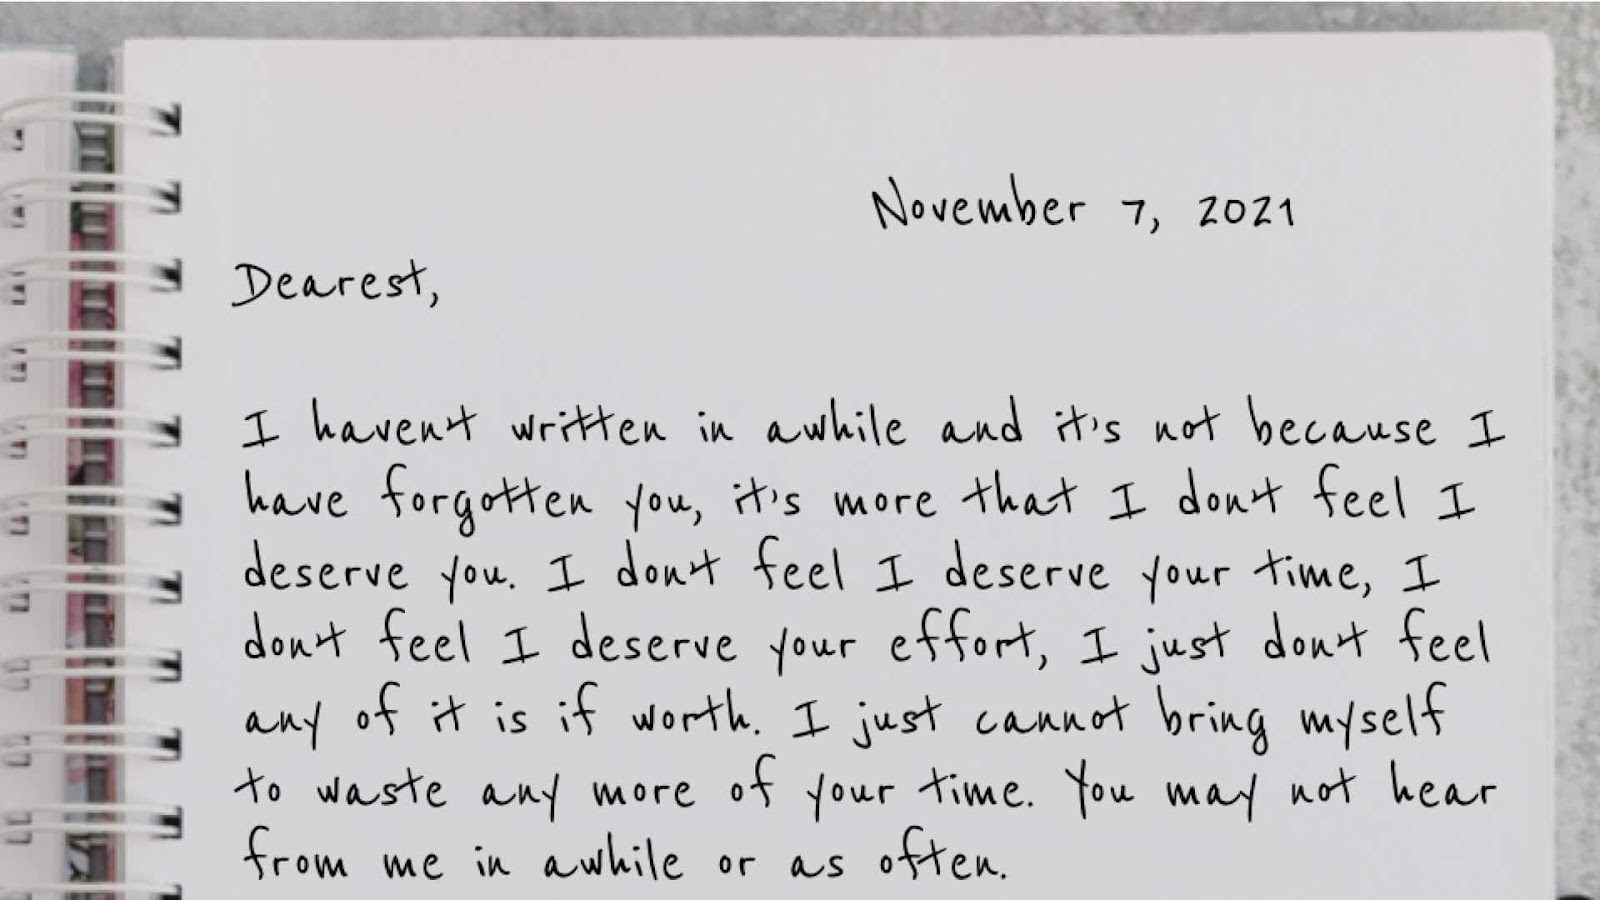 November 7, 2021
Dearest,
I haven't written in awhile and it's not because I
have forgotten you, it's more that I don't feel I
deserve you. I don't feel I deserve your time, I
don't feel I deserve your effort, I just don't feel
any of it is if worth. I just cannot bring myself
to waste any more of your time. You may not hear
from me in awhile or as often.